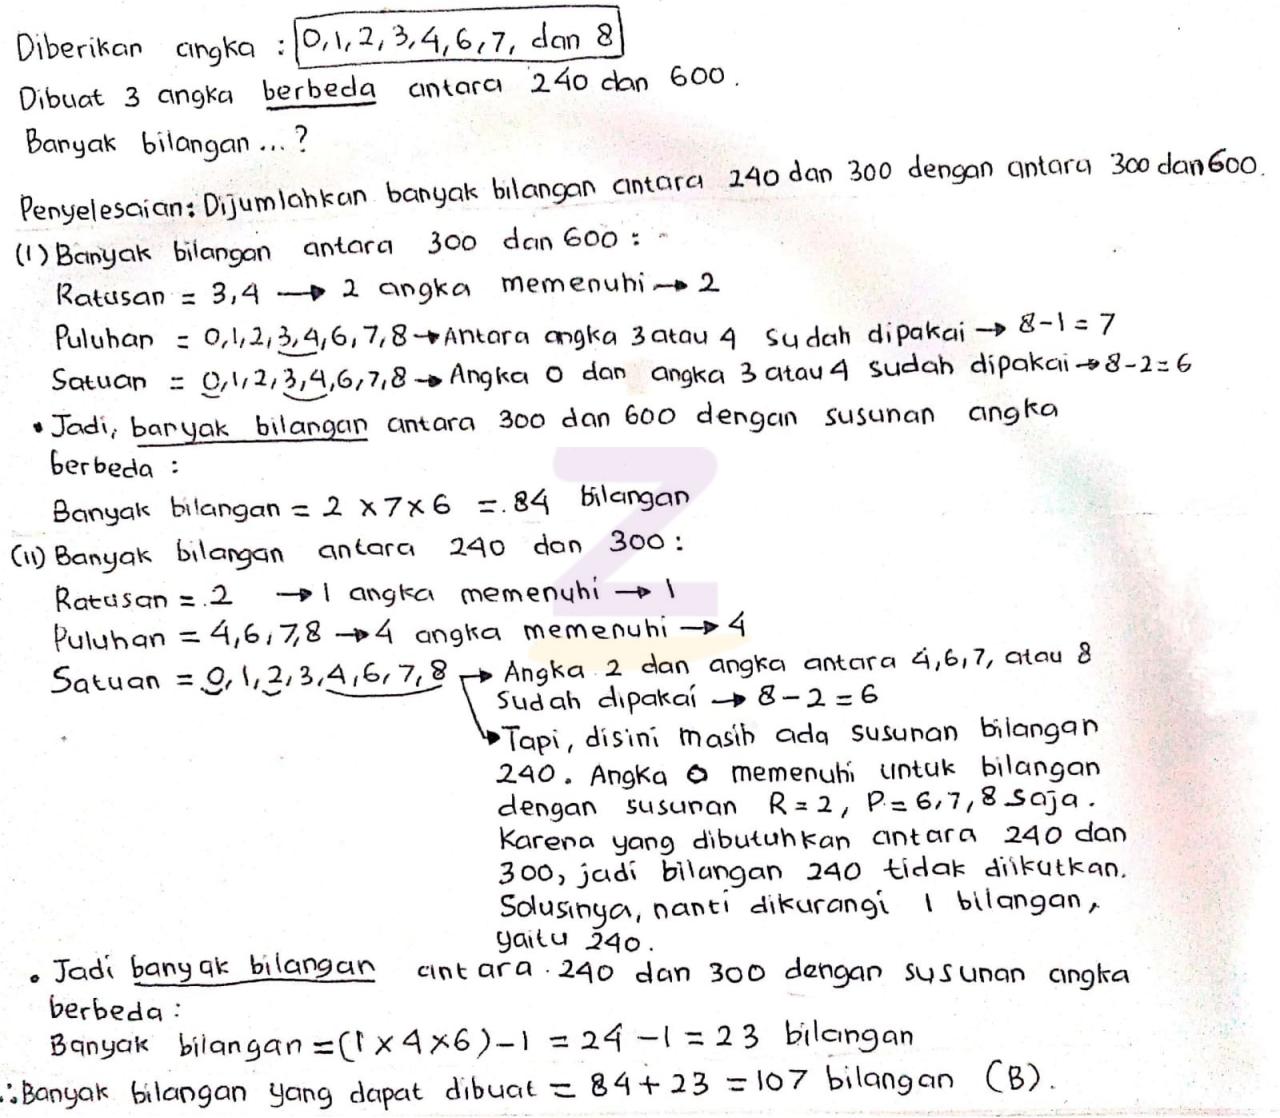 Diberikan angka : 0,1,2,3,4,6,7, dan 8
Dibuat 3 angka berbeda antara 240 dan 600.
Banyak bilangan ... ?
Penyelesaian: Dijumlahkan banyak bilangan antara 240 dan 300 dengan antara 300 dan 600.
(I) Banyak bilangan antara 300 dan 600 :
Ratusan = 3,4 → 2 angka memenuhi → 2
Puluhan = 0,1,2,3,4,6,7,8 → Antara angka 3 atau 4 sudah dipakai → 8-1=7
Satuan = 0,1,2,3,4,6,7,8 → Angka 0 dan angka 3 atau 4 sudah dipakai → 8-2=6
• Jadi, banyak bilangan antara 300 dan 600 dengan susunan angka
berbeda :
Banyak bilangan = 2 x 7 x 6 = 84 bilangan
(II) Banyak bilangan antara 240 dan 300 :
Ratusan = 2 → 1 angka memenuhi → 1
Puluhan = 4,6,7,8 → 4 angka memenuhi → 4
Satuan = 0,1,2,3,4,6,7,8 → Angka 2 dan angka antara 4,6,7, atau 8
sudah dipakai → 8-2=6
→ Tapi, disini masih ada susunan bilangan
240. Angka 0 memenuhi untuk bilangan
dengan susunan R=2, P=6,7,8 saja.
Karena yang dibutuhkan antara 240 dan
300, jadi bilangan 240 tidak diikutkan.
Solusinya, nanti dikurangi 1 bilangan,
yaitu 240.
• Jadi banyak bilangan antara 240 dan 300 dengan susunan angka
berbeda :
Banyak bilangan = (1 x 4 x 6) - 1 = 24 - 1 = 23 bilangan
∴ Banyak bilangan yang dapat dibuat = 84 + 23 = 107 bilangan (B).